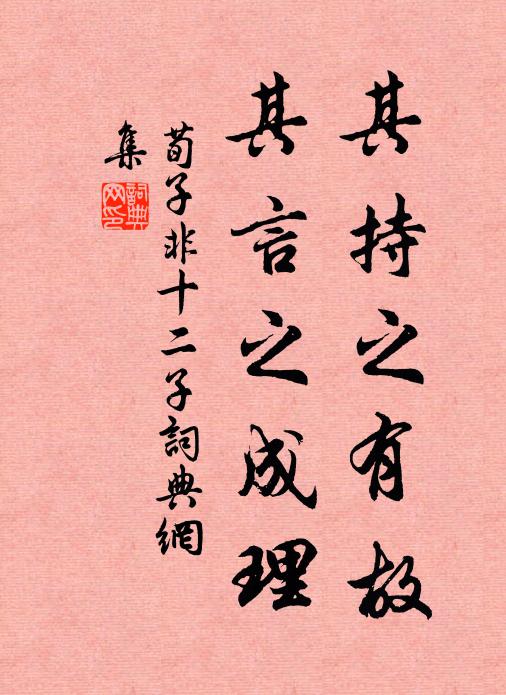 其持之有故
其言之成理
荀子非十二子詞典網
集
詞典
网印